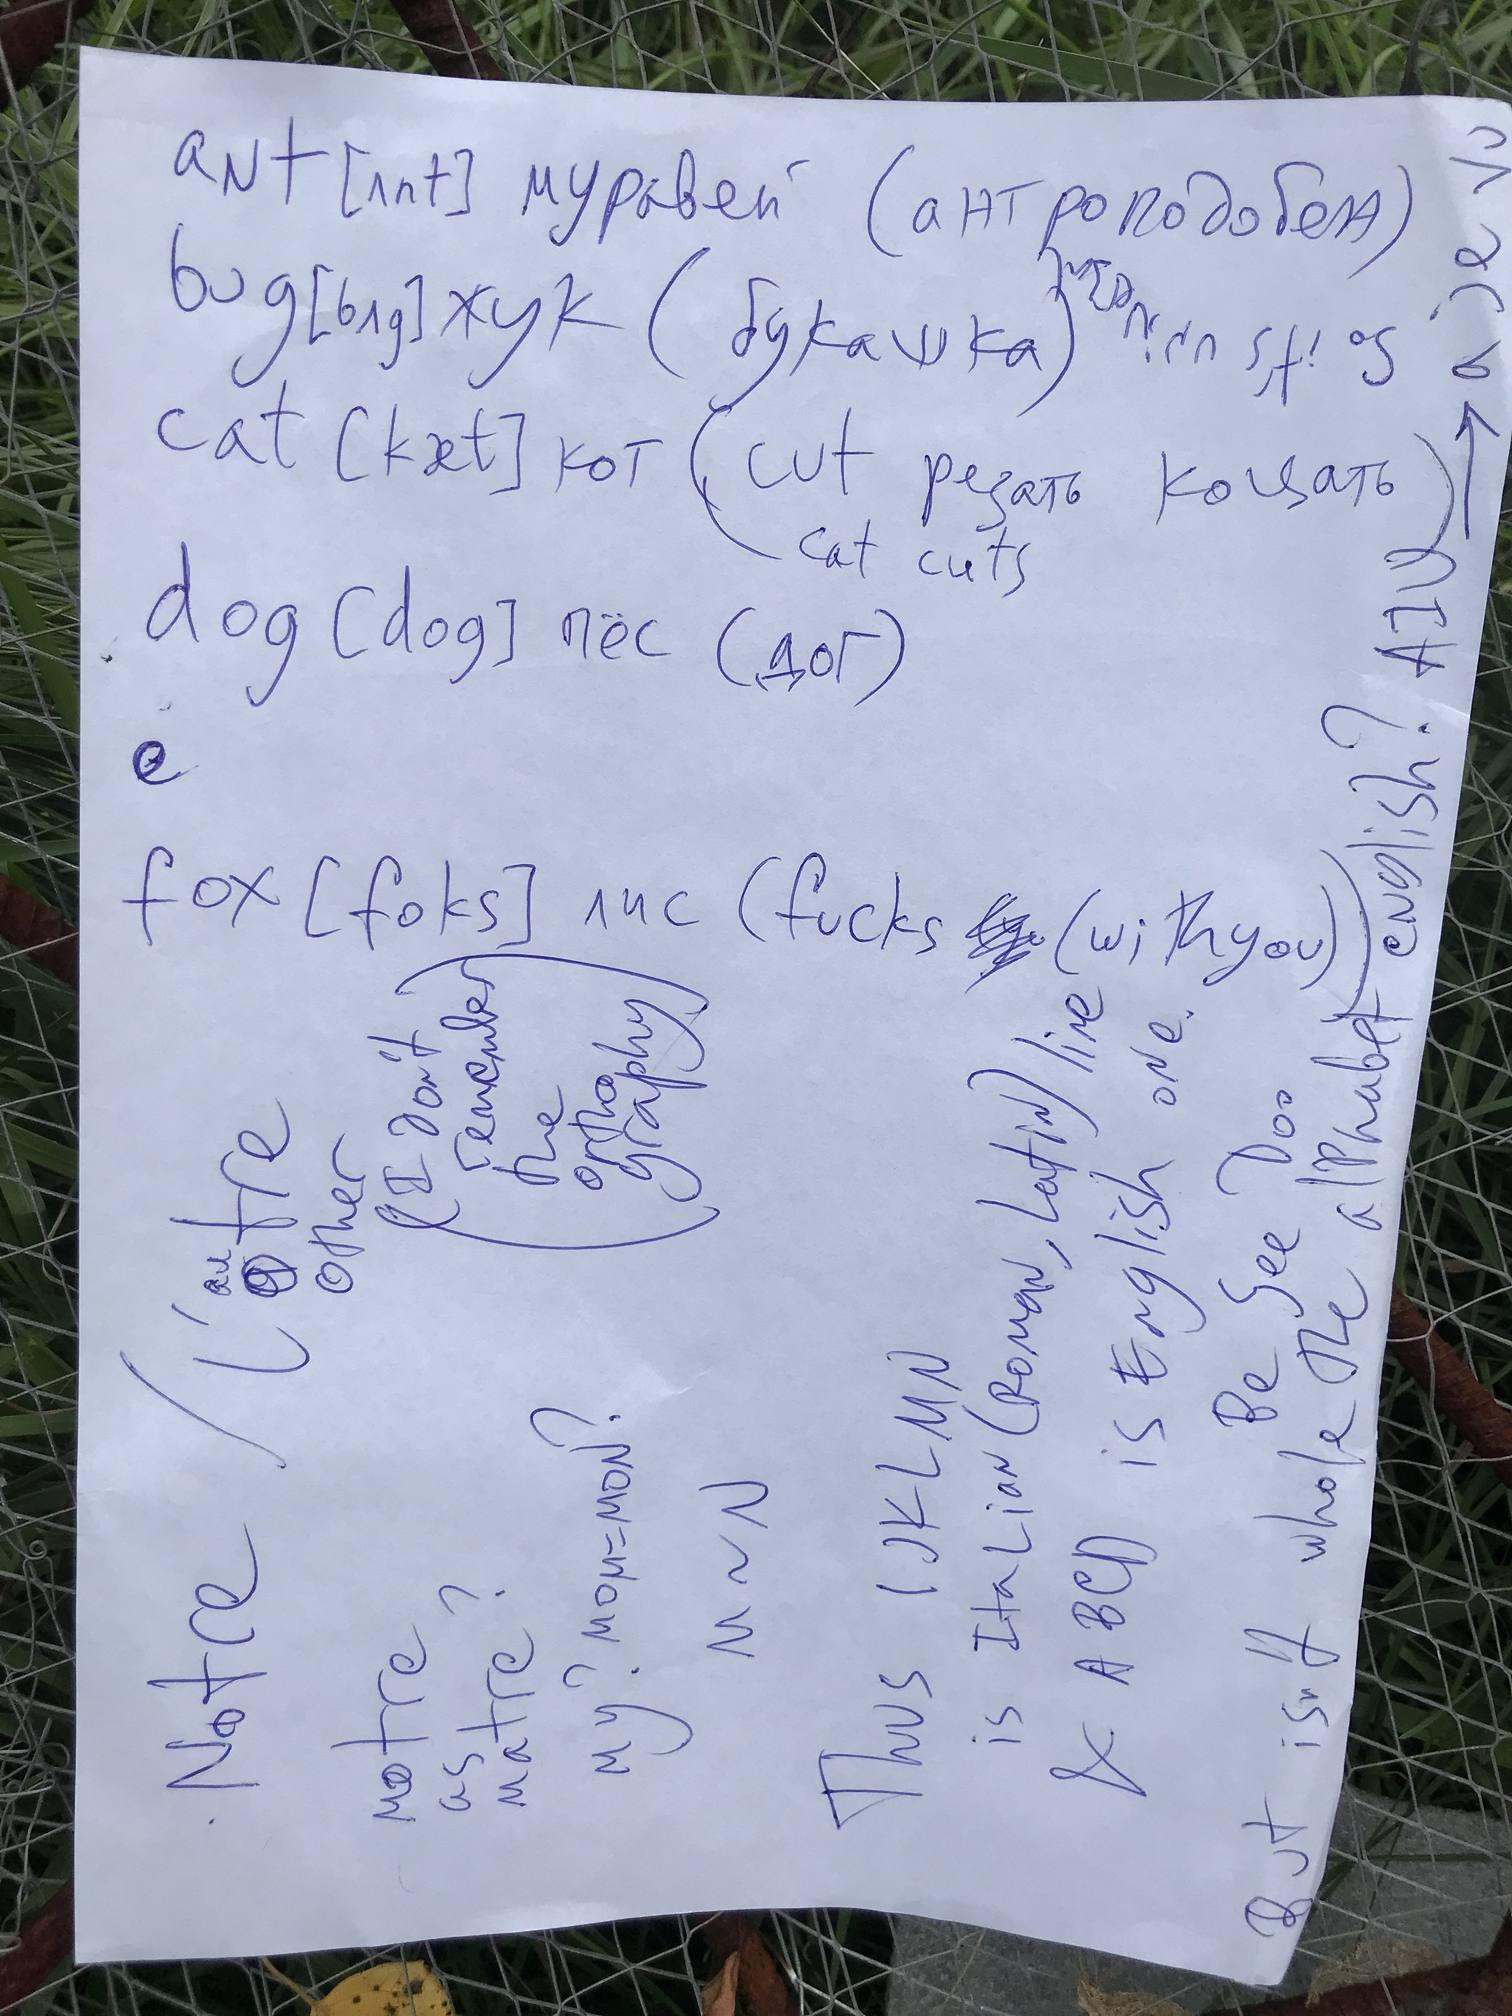 ant [ʌnt] муравей (антроподобен)
bug [bʌg] жук (букашка)
cat [kæt] кот (cut резать коцать
cat cuts
dog [dog] пёс (дог)
e
fox [foks] лис (fucks (with you)
Notre / L'autre
other
(I don't
remember
the
ortho
graphy)
motre ?
as
matre?
my? mom=mon?
m~N
Thus IJKLMN
is ItaLian (Roman, Latin) line
& ABCD is English one.
Be See Doo
But isn't whole the alphabet english? AIU → a